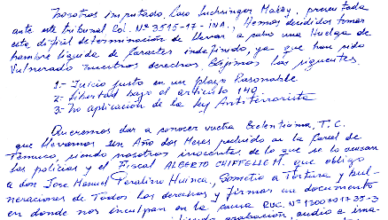 Nosotros imputado, Caso Luchsinger Makay, presentada
ante este tribunal Coi. Nº 3515-17-INA, Hemos decididos tomar
esta dificil determinación de llevar a cabo una Huelga de
hambre liquida de caracter indefinido, ya que han sido
Vulnerado nuestros derechos Exijimos las siguientes.
1.- Juicio justo en un plazo Razonable
2.- libertad bajo el articulo 140.
3.- No aplicación de la ley Antiterrorista
Queremos dar a conocer vuetra Exelentisima, T.C.
que llevamos un Año dos Meses recluido en la Carcel de
Temuco, siendo nosotros inocentes de lo que se le acusan
las policias y el Fiscal ALBERTO CHIFFELLE M. que obligó
a don Jose Manuel Peralino Huinca, Sometio a Tortura y vul-
neraciones de Todos los derechos y firmas un documento
en donde nos inculpan en la causa RUC.
grabación, audio a